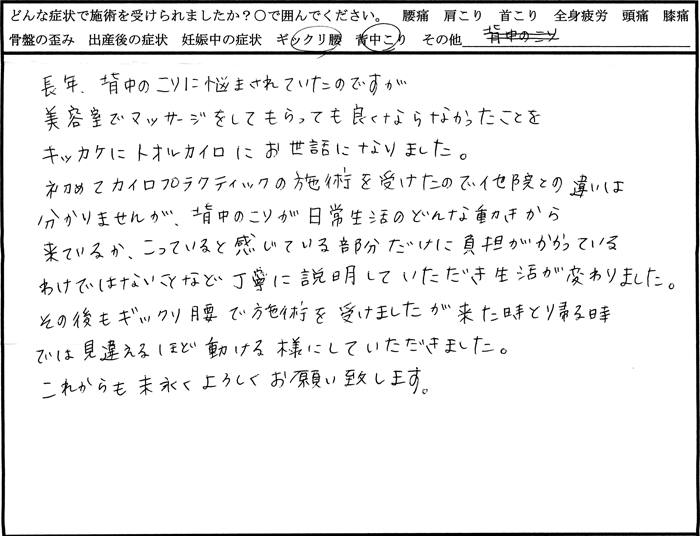 どんな症状で施術を受けられましたか？○で囲んでください。 腰痛 肩こり 首こり 全身疲労 頭痛 膝痛
骨盤の歪み 出産後の症状 妊娠中の症状 ギックリ腰 背中こり その他 背中のこり
長年、背中のこりに悩まされていたのですが
美容室でマッサージをしてもらっても良くならなかったことを
キッカケにトオルカイロにお世話になりました。
初めてカイロプラクティックの施術を受けたので他院との違いは
分かりませんが、背中のこりが日常生活のどんな動きから
来ているか、こっていると感じている部分だけに負担がかかっている
わけではないことなど丁寧に説明していただき生活が変わりました。
その後もギックリ腰で施術を受けましたが来た時とり帰る時
では見違えるほど動ける様にしていただきました。
これからも末永くよろしくお願い致します。